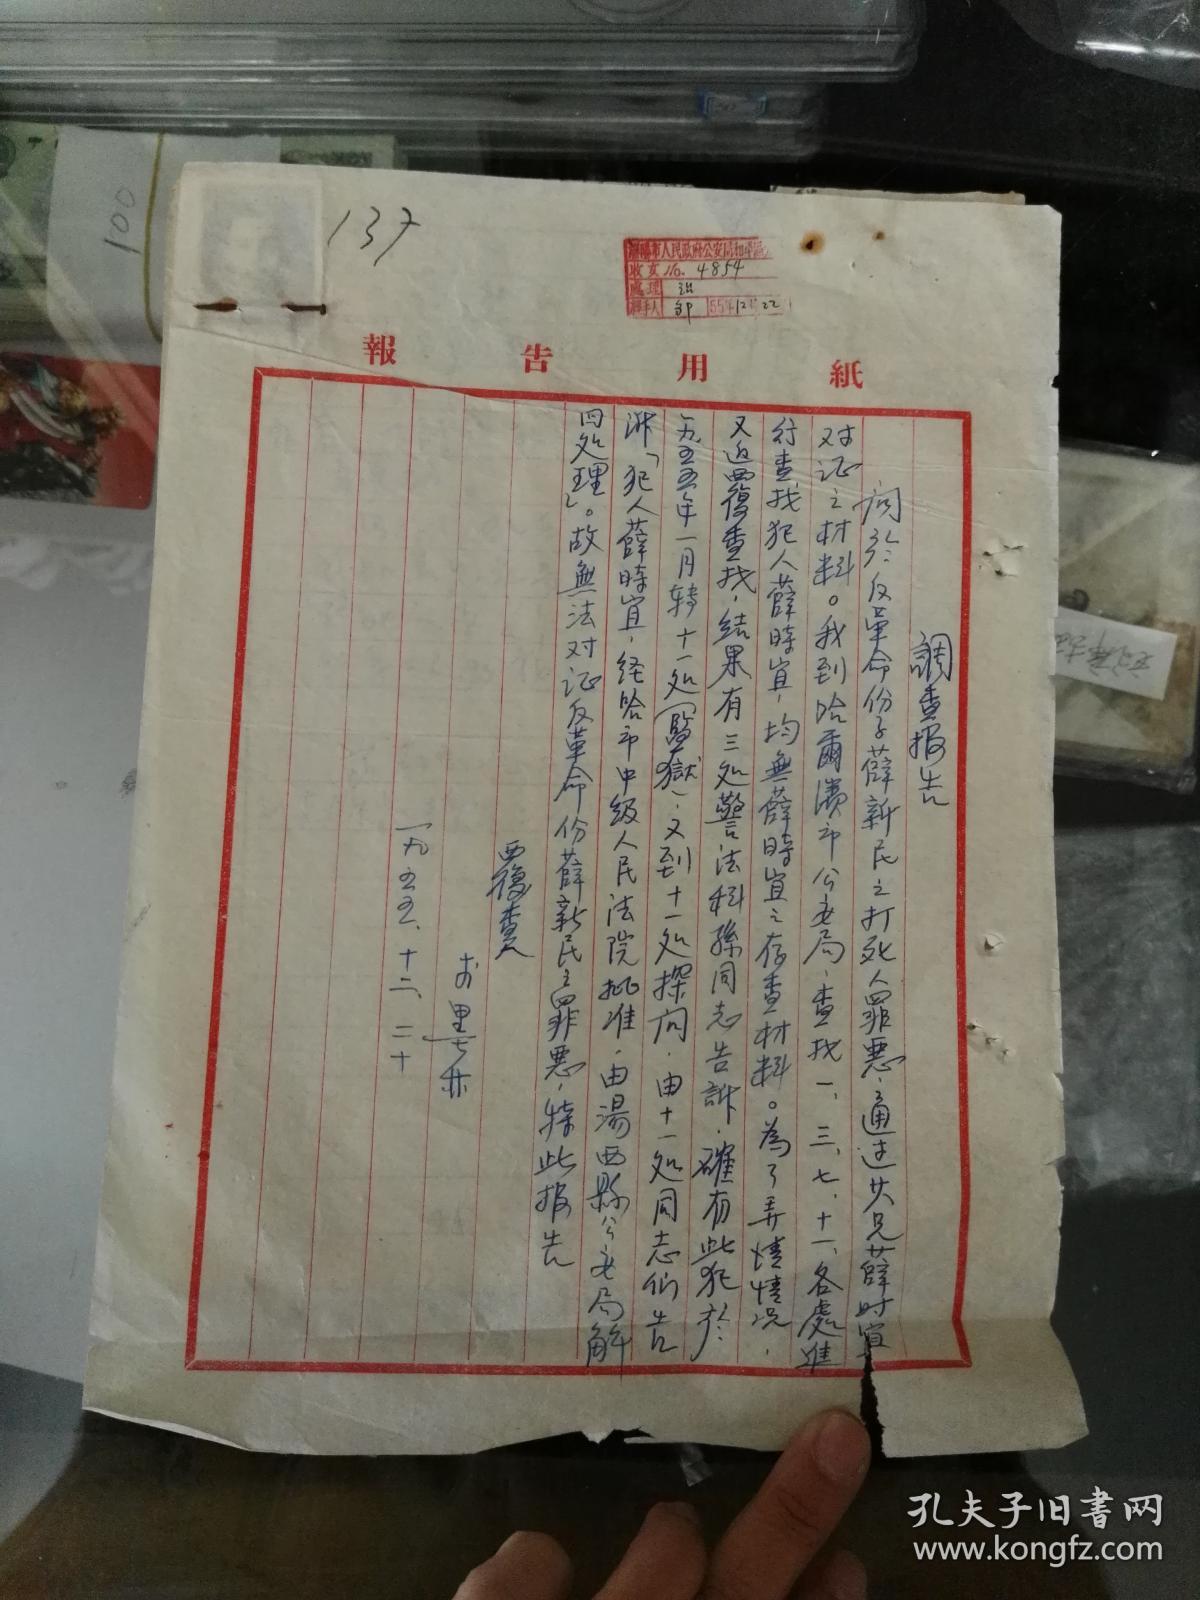 137
瀋陽市人民政府公安局和平區
收文No. 4854
處理
經手人 55年12月22
報告用紙
調查报告
関於反革命份子薛新民之打死人罪悪，通过其兄薛时宜
对证之材料。我到哈爾濱市公安局，查找一、三、七、十一、各處進
行查找犯人薛時宜，均無薛時宜之存查材料。為了弄清情况，
又返回復查找，結果有三処警法科孫同志告訴，確有此犯於
一九五五年一月轉十一処（監獄）。又到十一処探问，由十一処同志们告
訴「犯人薛時宜，经哈市中級人民法院批准，由湯西縣公安局解
回処理」。故無法对证反革命份薛新民之罪悪，特此报告
復查人
一九五五、十二、二十
100
孔夫子旧书网
www.kongfz.com